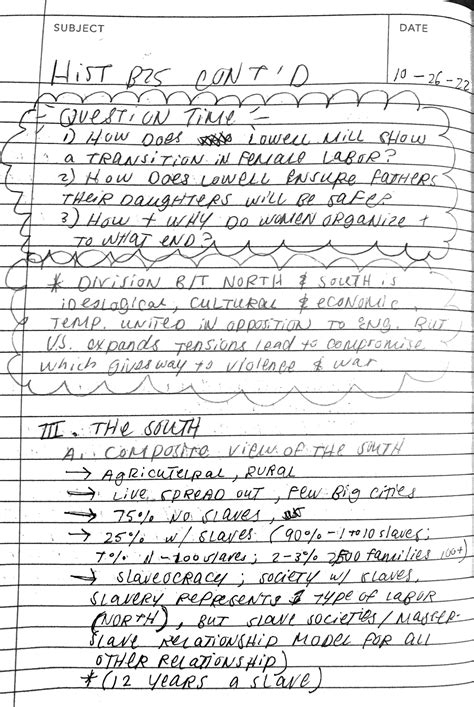 SUBJECT
DATE
HIST B25 CONT'D
10-26-22
QUESTION TIME -
1) HOW DOES LOWELL MILL SHOW
a TRANSITION IN FEMALE LABOR?
2) HOW DOES LOWELL ENSURE FATHERS
THEIR DAUGHTERS WILL BE SAFE?
3) HOW + WHY DO WOMEN ORGANIZE +
TO WHAT END?
* DIVISION B/T NORTH & SOUTH is
iDEOLOGICAL, CULTURAL & ECONOMIC,
TEMP. UNITED IN OPPOSITION TO ENG. BUT
US. expands TENSIONS lead to compromise
which gives way to violence & war.
III. THE SOUTH
A. COMPOSITE VIEW OF THE SOUTH
→ AGRICUTELRAL, RURAL
→ LIVE SPREAD OUT, FEW BIG CITIES
→ 75% NO SLAVES,
→ 25% W/ SLAVES (90% - 1 TO 10 SLAVES;
7% 11-100 SLAVES; 2-3% FAMILIES 100+)
→ SLAVEOCRACY; SOCIETY W/ SLAVES,
SLAVERY REPRESENTS 1 TYPE OF LABOR
(NORTH), BUT SLAVE SOCIETIES/MASTER-
SLAVE RELATIONSHIP MODEL FOR ALL
OTHER RELATIONSHIP)
*(12 YEARS A SLAVE)